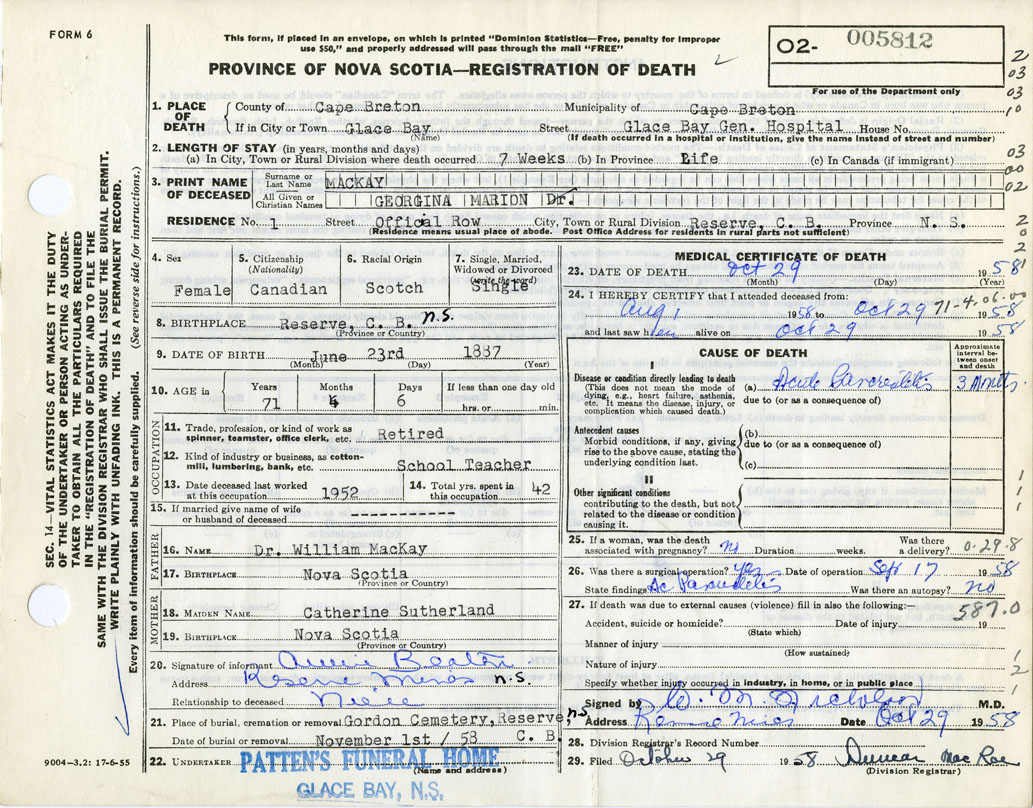 FORM 6
This form, if placed in an envelope, on which is printed "Dominion Statistics—Free, penalty for improper
use $50," and properly addressed will pass through the mail "FREE"
PROVINCE OF NOVA SCOTIA—REGISTRATION OF DEATH
02- 005812
For use of the Department only
2
03
03
10
03
00
02
2
0
2
1. PLACE OF DEATH County of Cape Breton Municipality of Cape Breton
If in City or Town Glace Bay Street Glace Bay Gen. Hospital House No.
(Name) (If death occurred in a hospital or institution, give the name instead of street and number)
2. LENGTH OF STAY (in years, months and days)
(a) In City, Town or Rural Division where death occurred 7 Weeks (b) In Province Life (c) In Canada (if immigrant)
3. PRINT NAME OF DECEASED Surname or Last Name MACKAY
All Given or Christian Names GEORGINA MARION Dr.
RESIDENCE No. 1 Street Official Row City, Town or Rural Division Reserve, C. B. Province N. S.
(Residence means usual place of abode. Post Office Address for residents in rural parts not sufficient)
4. Sex Female
5. Citizenship (Nationality) Canadian
6. Racial Origin Scotch
7. Single, Married, Widowed or Divorced (write the word) Single
8. BIRTHPLACE Reserve, C. B. N.S.
(Province or Country)
9. DATE OF BIRTH June 23rd 1887
(Month) (Day) (Year)
10. AGE in Years Months Days If less than one day old
71 4 6 hrs. or min.
OCCUPATION
11. Trade, profession, or kind of work as spinner, teamster, office clerk, etc. Retired
12. Kind of industry or business, as cotton-mill, lumbering, bank, etc. School Teacher
13. Date deceased last worked at this occupation 1952
14. Total yrs. spent in this occupation 42
15. If married give name of wife or husband of deceased
FATHER
16. NAME Dr. William MacKay
17. BIRTHPLACE Nova Scotia
(Province or Country)
MOTHER
18. MAIDEN NAME Catherine Sutherland
19. BIRTHPLACE Nova Scotia
(Province or Country)
20. Signature of informant Annie Beaton
Address Reserve Mines N.S.
Relationship to deceased Niece
21. Place of burial, cremation or removal Gordon Cemetery, Reserve, N.S.
Date of burial or removal November 1st / 58 C. B
22. UNDERTAKER PATTEN'S FUNERAL HOME
(Name and address)
GLACE BAY, N.S.
9004—3.2: 17-6-55
MEDICAL CERTIFICATE OF DEATH
23. DATE OF DEATH Oct 29 1958
(Month) (Day) (Year)
24. I HEREBY CERTIFY that I attended deceased from:
Aug 1 1958 to Oct 29 1958
71-4.06.00
and last saw her alive on Oct 29 1958
CAUSE OF DEATH
Approximate interval between onset and death
I
Disease or condition directly leading to death (a) Acute Pancreatitis 3 Months
(This does not mean the mode of dying, e.g., heart failure, asthenia, etc. It means the disease, injury, or complication which caused death.)
due to (or as a consequence of)
Antecedent causes
Morbid conditions, if any, giving rise to the above cause, stating the underlying condition last.
(b)
due to (or as a consequence of)
(c)
II
Other significant conditions
contributing to the death, but not related to the disease or condition causing it.
1
1
1
25. If a woman, was the death associated with pregnancy? No Duration weeks. Was there a delivery?
0.29.8
26. Was there a surgical operation? Yes Date of operation Sep 17 1958
State findings Ac. Pancreatitis Was there an autopsy? no
27. If death was due to external causes (violence) fill in also the following:—
587.0
Accident, suicide or homicide? Date of injury 19
(State which)
Manner of injury
(How sustained)
Nature of injury
Specify whether injury occurred in industry, in home, or in public place
1
2
1
Signed by M.D.
Address Reserve Mines Date Oct 29 1958
28. Division Registrar's Record Number
29. Filed October 29 1958 Duncan MacRae
(Division Registrar)
SEC. 14—VITAL STATISTICS ACT MAKES IT THE DUTY
OF THE UNDERTAKER OR PERSON ACTING AS UNDER-
TAKER TO OBTAIN ALL THE PARTICULARS REQUIRED
IN THE "REGISTRATION OF DEATH" AND TO FILE THE
SAME WITH THE DIVISION REGISTRAR WHO SHALL ISSUE THE BURIAL PERMIT.
WRITE PLAINLY WITH UNFADING INK. THIS IS A PERMANENT RECORD.
Every item of information should be carefully supplied. (See reverse side for instructions.)